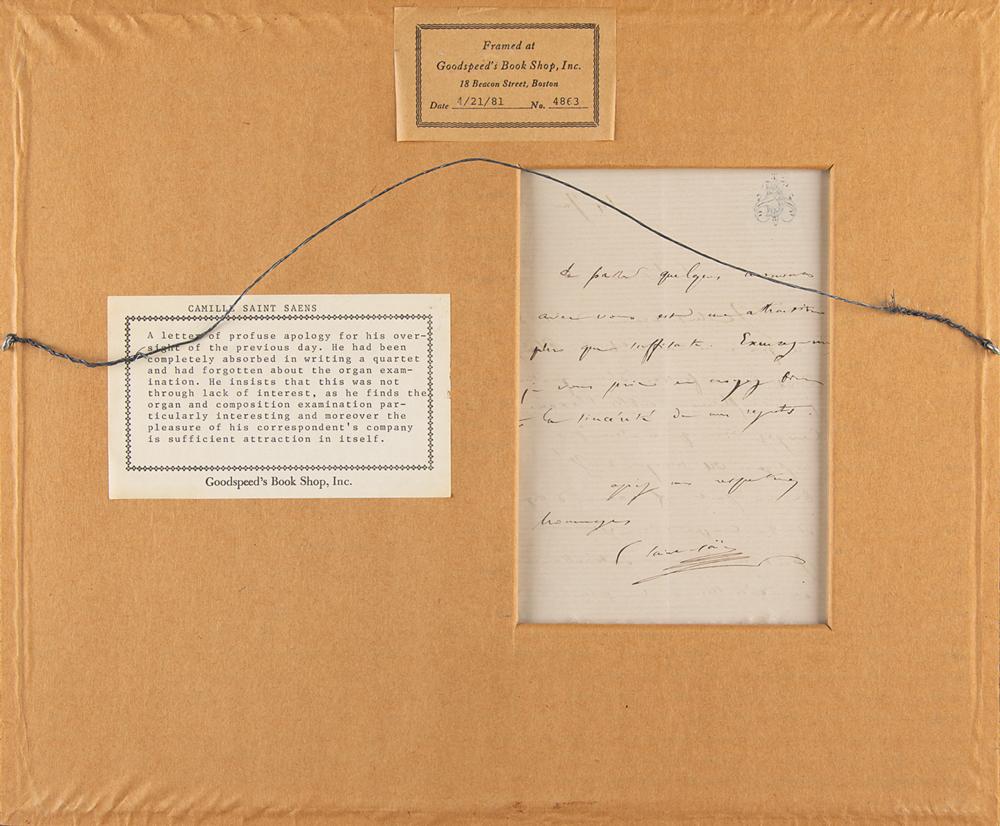 Framed at
Goodspeed's Book Shop, Inc.
18 Beacon Street, Boston
Date 4/21/81 No. 4863
CAMILLE SAINT SAENS
A letter of profuse apology for his over-
sight of the previous day. He had been
completely absorbed in writing a quartet
and had forgotten about the organ exam-
ination. He insists that this was not
through lack of interest, as he finds the
organ and composition examination par-
ticularly interesting and moreover the
pleasure of his correspondent's company
is sufficient attraction in itself.
Goodspeed's Book Shop, Inc.
de passer quelques moments
avec vous est une attraction
plus que suffisante. Excusez-moi
je vous prie et croyez bien
à la sincérité de mes regrets.
mes respectueux
hommages
C. Saint-Saëns